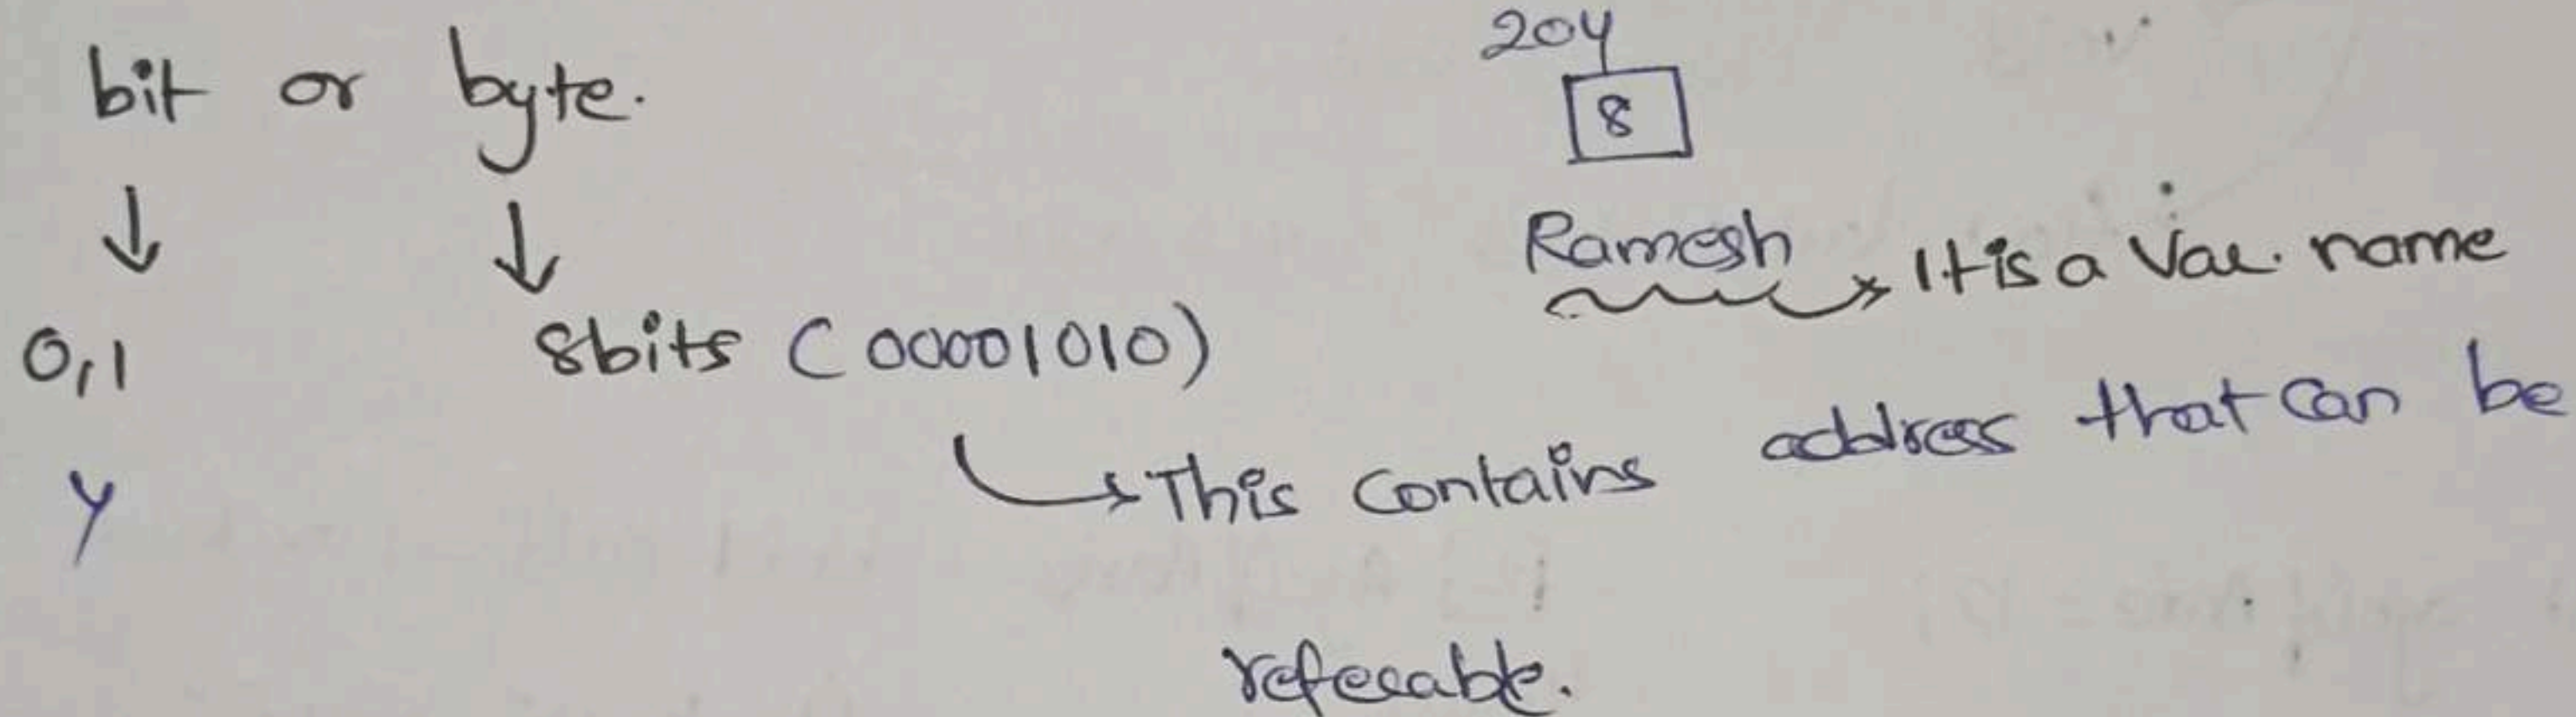 bit or byte.
204
8
Ramesh
It is a Var. name
0,1
8bits (00001010)
y
This contains address that can be
referable.